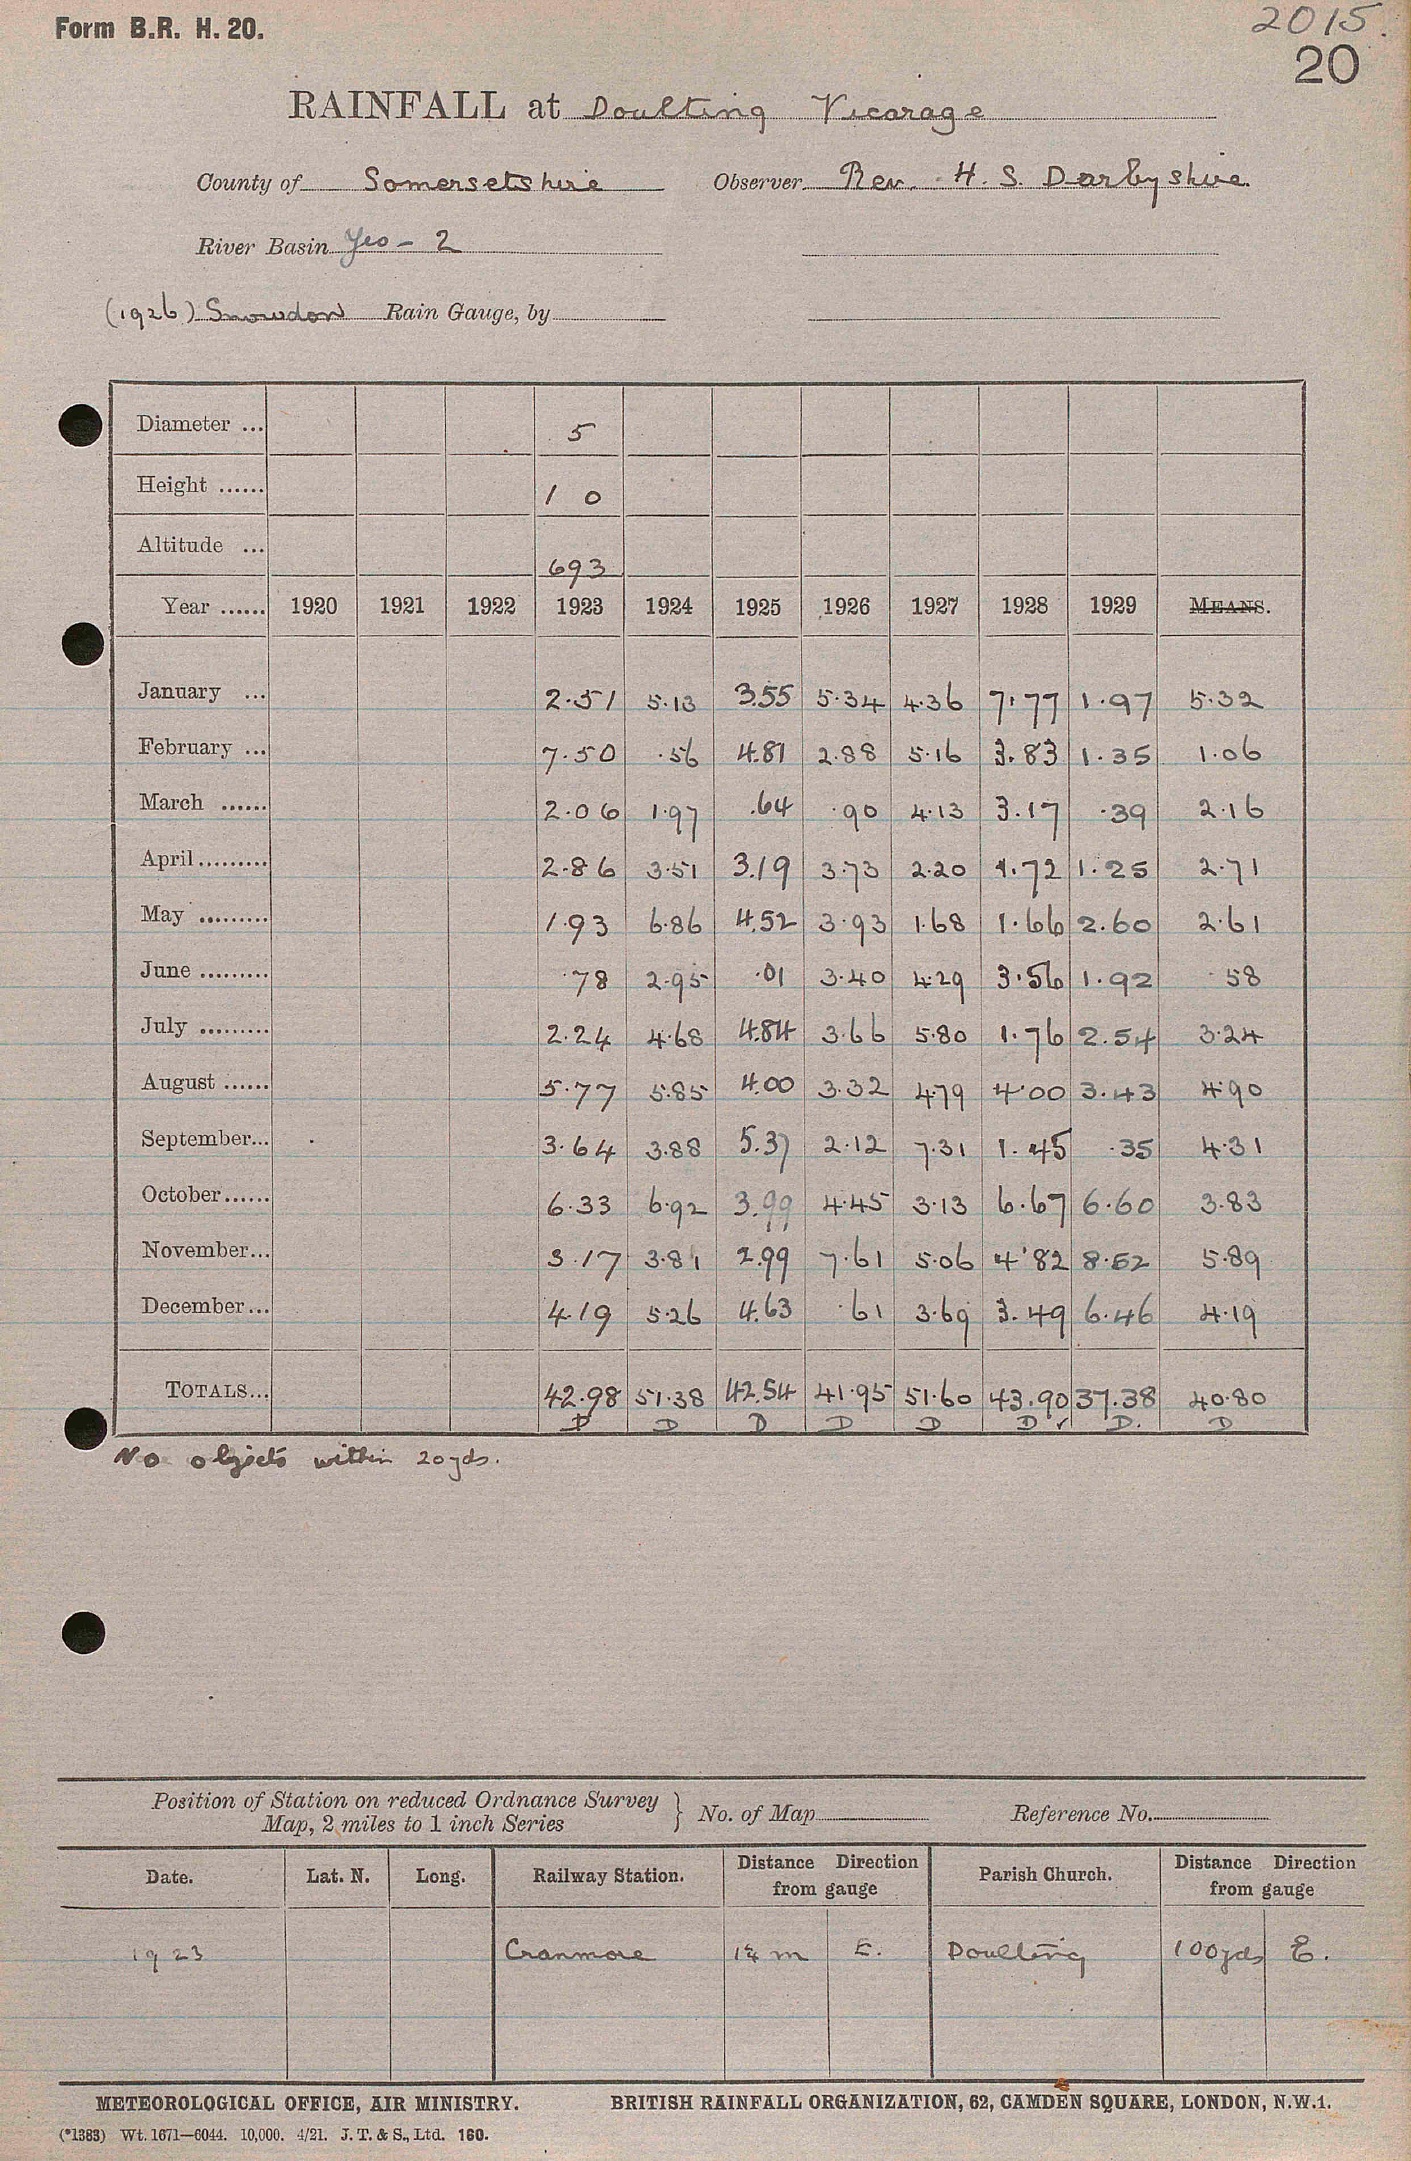 Form B.R. H. 20.
2015.
20
RAINFALL at Doulting Vicarage
County of Somersetshire Observer Rev. H. S. Darbyshire
River Basin Yeo - 2
(1926) Snowdon Rain Gauge, by
Diameter ... 5
Height ...... 1 0
Altitude ... 693
Year ...... 1920 1921 1922 1923 1924 1925 1926 1927 1928 1929 MEANS.
January ... 2.51 5.13 3.55 5.34 4.36 7.77 1.97 5.32
February ... 7.50 .56 4.81 2.88 5.16 3.83 1.35 1.06
March ...... 2.06 1.97 .64 .90 4.13 3.17 .39 2.16
April ......... 2.86 3.51 3.19 3.73 2.20 1.72 1.25 2.71
May ......... 1.93 6.86 4.52 3.93 1.68 1.66 2.60 2.61
June ......... .78 2.95 .01 3.40 4.29 3.56 1.92 .58
July ......... 2.24 4.68 4.84 3.66 5.80 1.76 2.54 3.24
August ...... 5.77 5.85 4.00 3.32 4.79 4.00 3.43 4.90
September... 3.64 3.88 5.37 2.12 7.31 1.45 .35 4.31
October...... 6.33 6.92 3.99 4.45 3.13 6.67 6.60 3.83
November... 3.17 3.81 2.99 7.61 5.06 4.82 8.52 5.89
December... 4.19 5.26 4.63 .61 3.69 3.49 6.46 4.19
TOTALS... 42.98 51.38 42.54 41.95 51.60 43.90 37.38 40.80
D D D D D D ✓ D. D
No objects within 20 yds.
Position of Station on reduced Ordnance Survey
Map, 2 miles to 1 inch Series } No. of Map Reference No.
Date. Lat. N. Long. Railway Station. Distance Direction from gauge Parish Church. Distance Direction from gauge
1923 Cranmore 1¼ m E. Doulting 100yds E.
METEOROLOGICAL OFFICE, AIR MINISTRY. BRITISH RAINFALL ORGANIZATION, 62, CAMDEN SQUARE, LONDON, N.W.1.
(*1383) Wt. 1671—6044. 10,000. 4/21. J. T. & S., Ltd. 160.